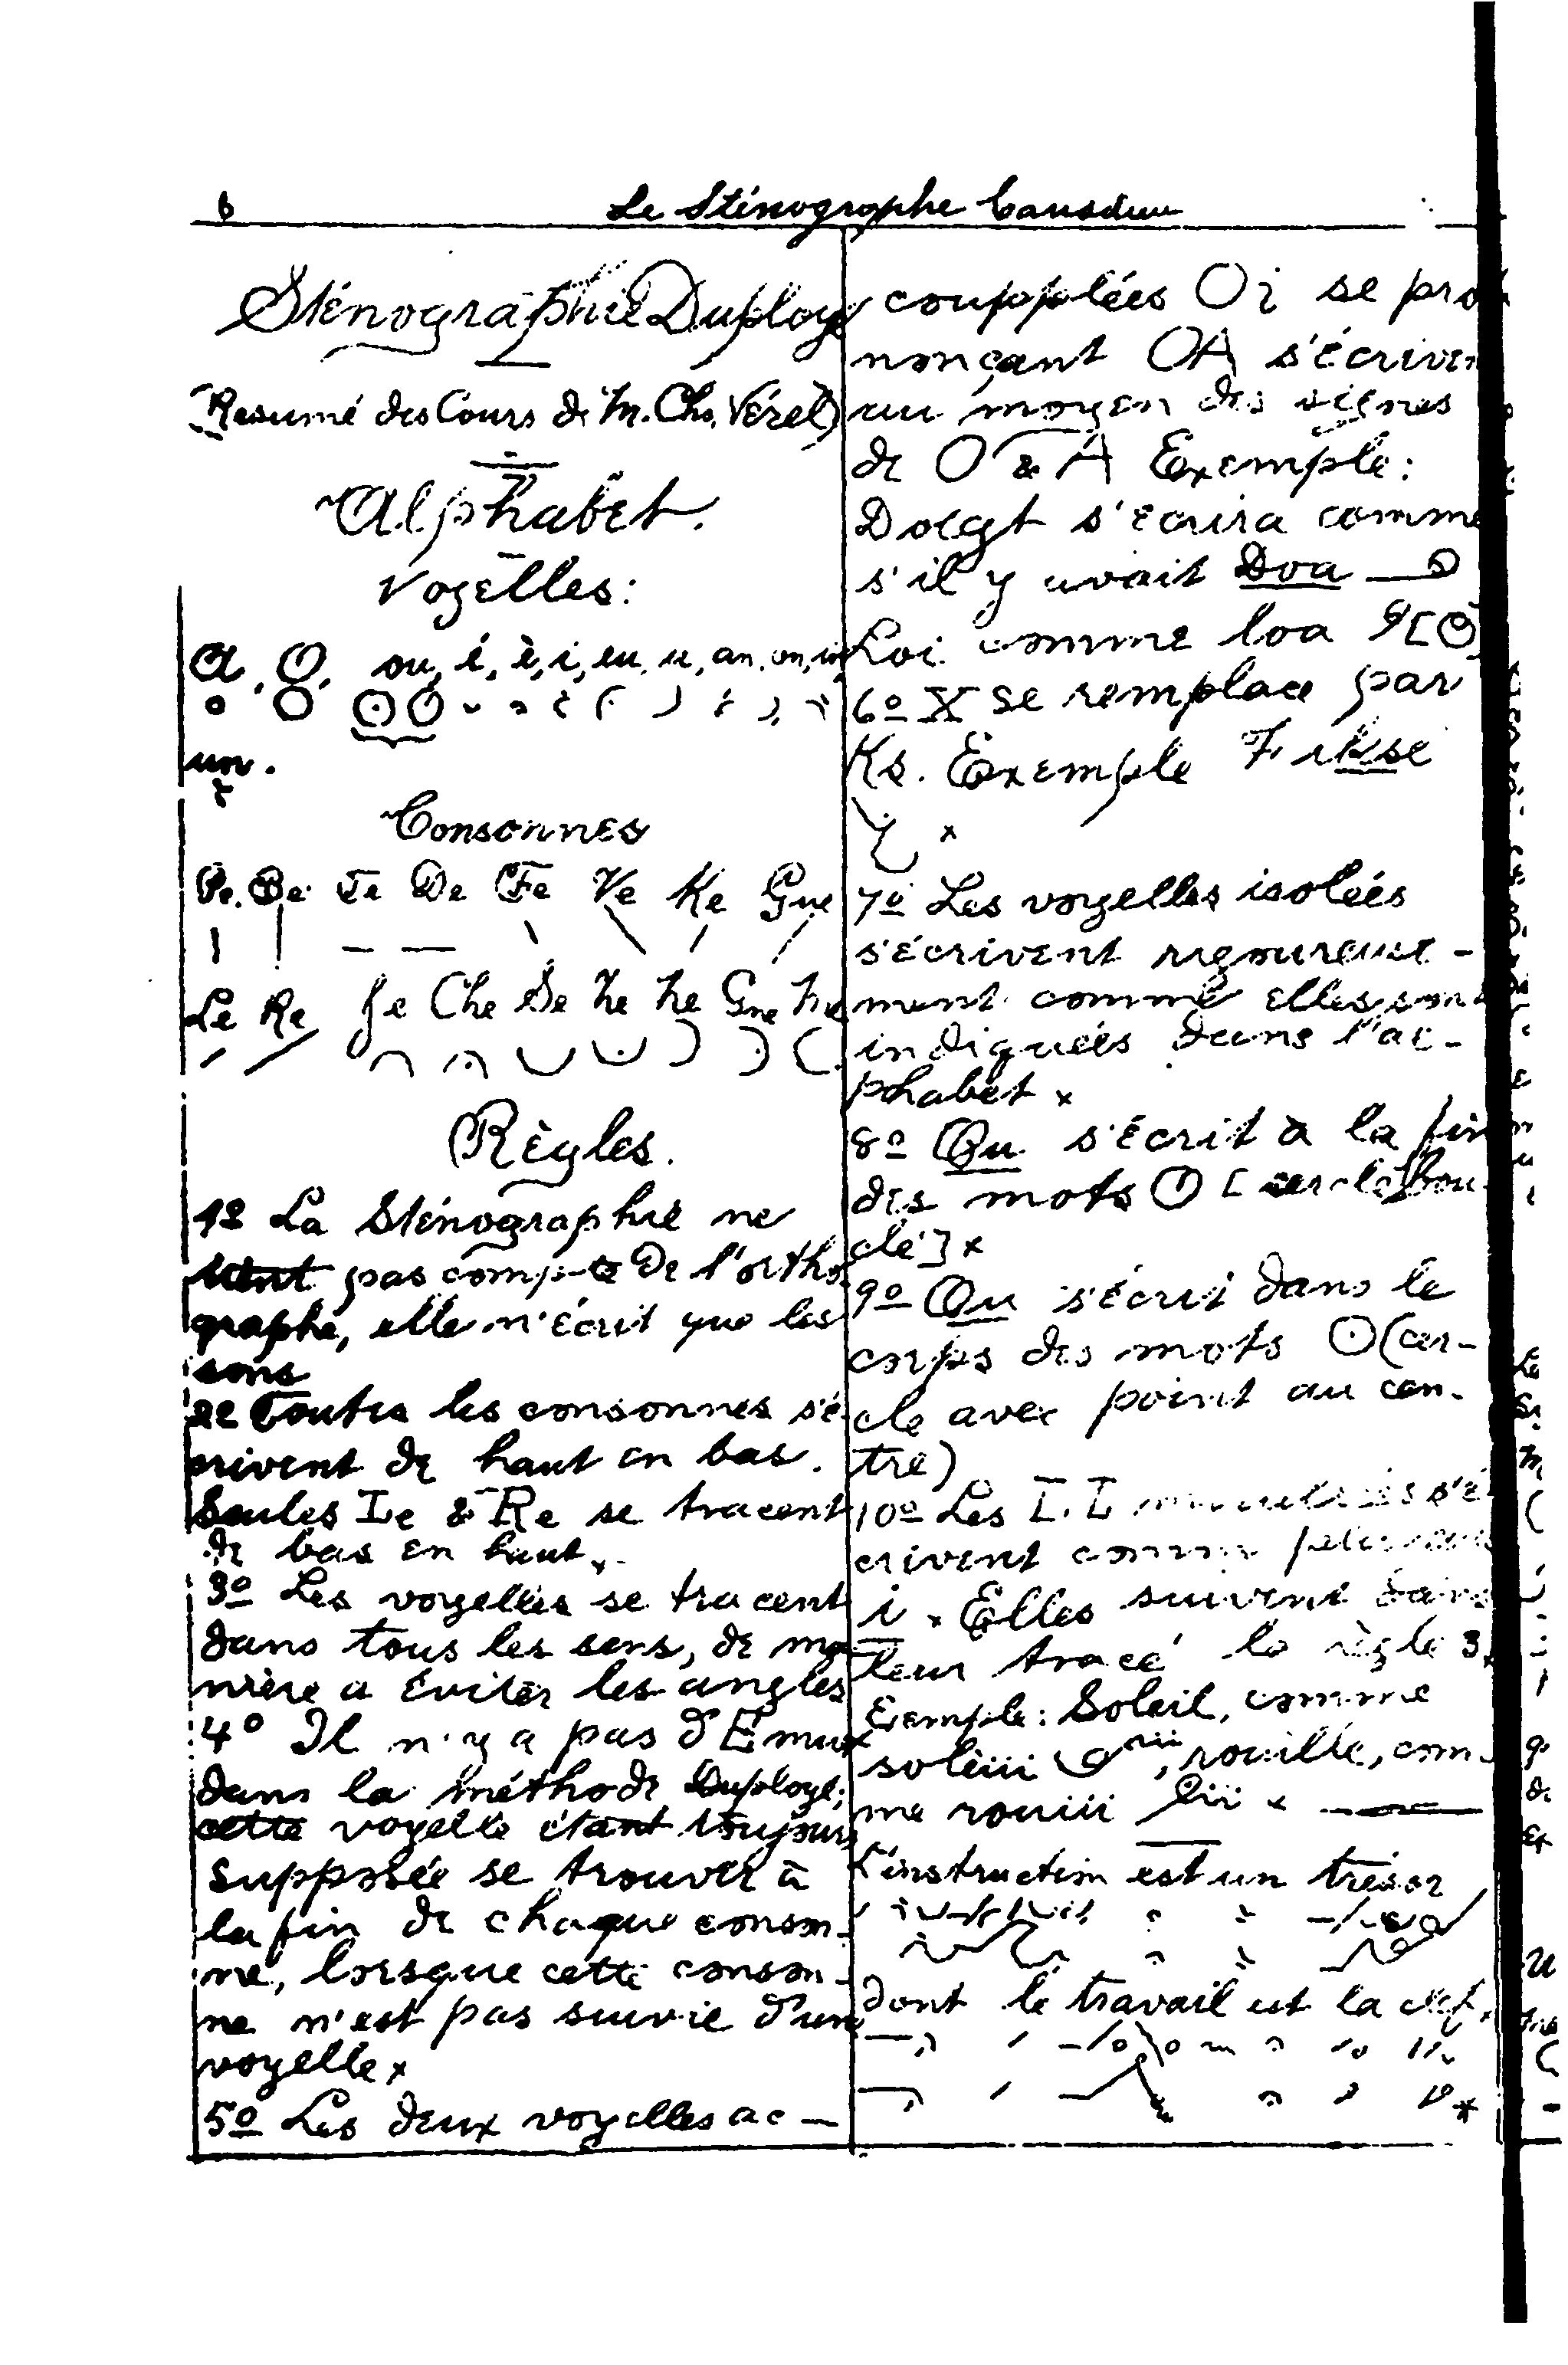 6
Le Sténographe Canadien
Sténographie Duployé
(Resumé des Cours de M. Chs. Vérel)
Alphabet.
Voyelles:
A, O, ou, é, è, i, eu, u, an, on, in,
un.
Consonnes
Pe. Be Te De Fe Ve Ke Gue
Le Re Je Che Se Ze Ne Gne Me
Règles.
1º La Sténographie ne
tient pas compte de l'ortho
graphe, elle n'écrit que les
sons
2e Toutes les consonnes s'é
crivent de haut en bas.
Seules Le & Re se tracent
de bas en haut.
3º Les voyelles se tracent
dans tous les sens, de ma
nière a éviter les angles
4º Il n'y a pas d'E muet
dans la méthode Duployé;
cette voyelle étant toujours
supposée se trouver à
la fin de chaque conson-
ne, lorsque cette conson-
ne n'est pas suivie d'une
voyelle x
5º Les deux voyelles ac-
coupplées Oi se pro
nonçant OA s'écrivent
au moyen des signes
de O & A Exemple:
Doigt s'écrira comme
s'il y avait Doa
Loi comme loa
6º X se remplace par
Ks. Exemple Fikse
x
7º Les voyelles isolées
s'écrivent rigoureuse-
ment comme elles sont
indiquées dans l'al-
phabet x
8º Ou s'écrit à la fin
des mots [cercle bou
clé] x
9º Ou s'écrit dans le
corps des mots (cer-
cle avec point au cen-
tre)
10º Les L.L mouillées s'é
crivent comme plusieurs
i x Elles suivent dans
leur tracé la règle 3.
Exemple: Soleil, comme
soleiii, rouille, com-
me rouiii x
L'instruction est un trésor
dont le travail est la clef.